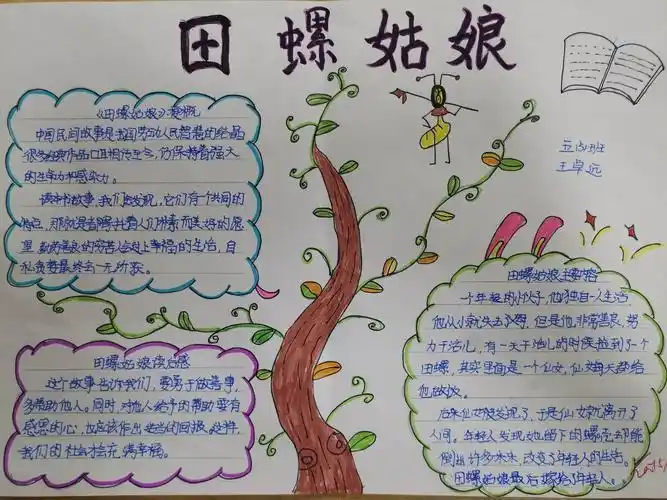 田螺姑娘
五(3)班
王卓远
《田螺姑娘》梗概
中国民间故事是我国劳动人民智慧的结晶
很多经典作品口口相传至今,仍保持着强大
的生命力和感染力。
读中故事,我们发现,它们有一个共同的
特点,那就是都寄托着人们朴素而美好的愿
望 勤劳善良的穷苦人会过上幸福的生活,自
私贪婪最终会一无所获。
田螺姑娘读后感
这个故事告诉我们,要勇于做善事,
多帮助他人。同时,对他人给予的帮助要有
感恩的心,也应该作出适当的回报。这样,
我们的社会才会充满幸福。
田螺姑娘主要内容
一个年轻的小伙子,他独自一人生活
他从小就失去父母,但是他非常善良,努
力干活儿,有一天干活儿的时候捡到了一个
田螺,其实里面是一个仙女,仙女每天都给
他做饭。
后来仙女被发现了,于是仙女就离开了
人间。年轻人发现她留下的螺壳却能
倒出许多米来,改变了年轻人的生活。
田螺姑娘最后嫁给了年轻人。